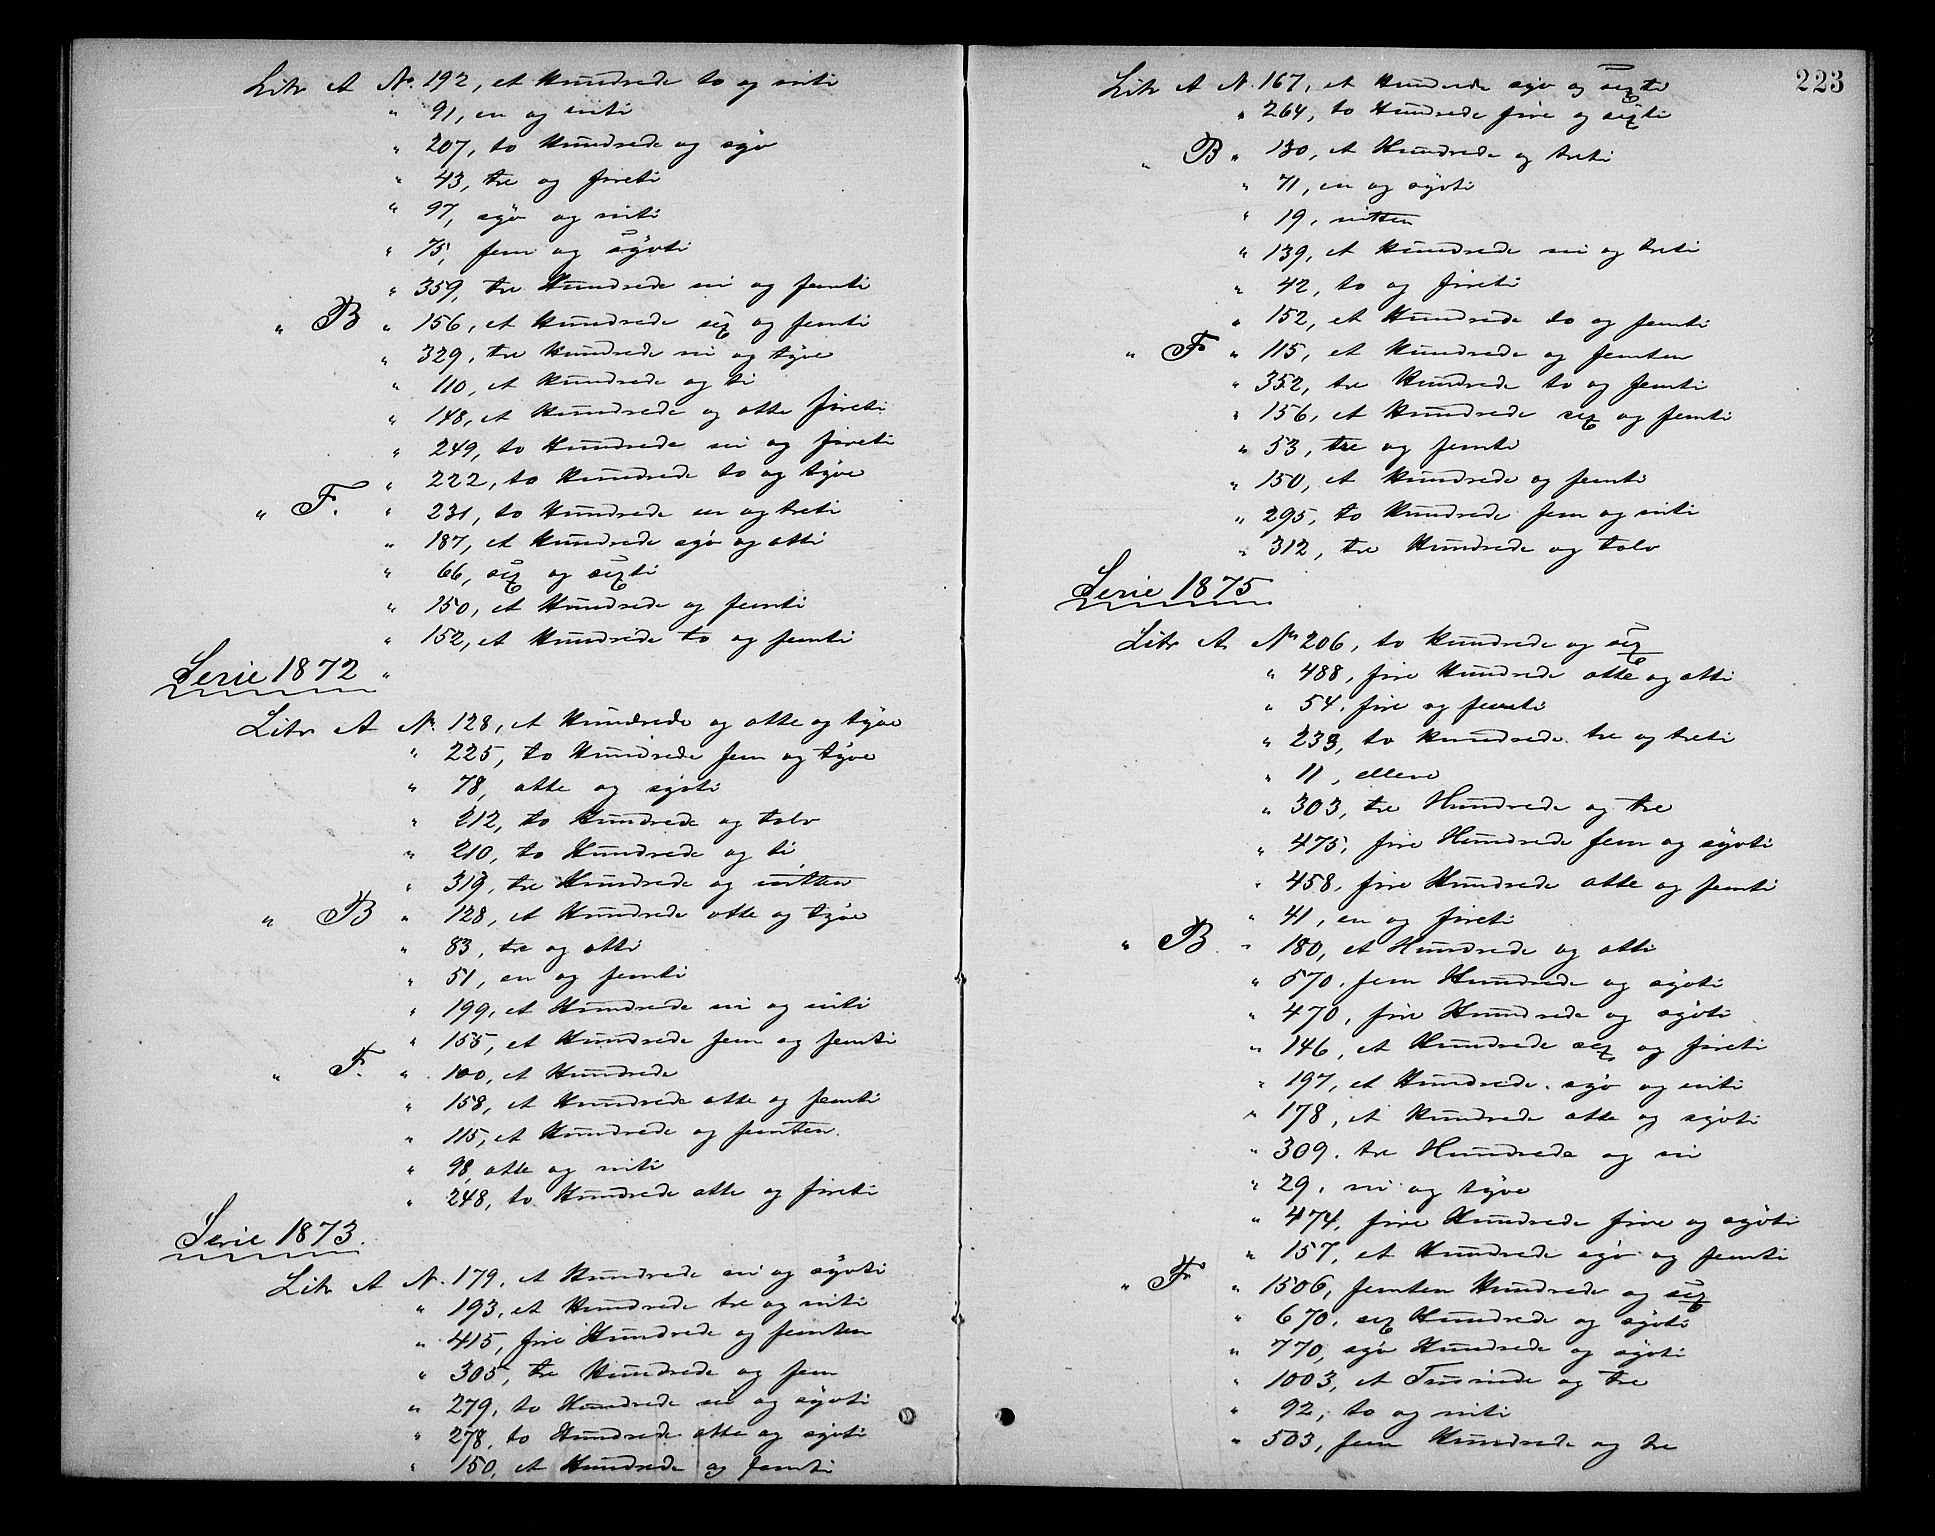 Litr A No. 192, et Hundrede to og niti
" 91, en og niti
" 207, to Hundrede og syv
" 43, tre og fireti
" 97, syv og niti
" 75, fem og syvti
" 359, tre Hundrede ni og femti
" B " 156, et Hundrede sex og femti
" 329, tre hundrede ni og tyve
" 110, et Hundrede og ti
" 148, et Hundrede og otte fireti
" 249, to Hundrede ni og fireti
" 222, to Hundrede to og tyve
" F. " 231, to Hundrede en og treti
" 187, et Hundrede syv og otti
" 66, sex og sexti
" 150, et Hundrede og femti
" 152, et Hundrede to og femti
Serie 1872 "
Litr A No. 128, et Hundrede og otte og tyve
" 225, to Hundrede fem og tyve
" 78, otte og syvti
" 212, to Hundrede og tolv
" 210, to Hundrede og ti
" 319, tre Hundrede og nitten
" B " 128, et Hundrede otte og tyve
" 83, tre og otti
" 51, en og femti
" 199, et Hundrede ni og niti
" 155, et Hundrede fem og femti
" F. " 100, et Hundrede
" 158, et Hundrede otte og femti
" 115, et Hundrede og femten.
" 98, otte og niti
" 248, to Hundrede otte og fireti
Serie 1873.
Litr A N. 179, et Hundrede ni og syvti
" 193, et Hundrede tre og niti
" 415, fire Hundrede og femten
" 305, tre Hundrede og fem
" 279, to Hundrede ni og syvti
" 278, to Hundrede otte og syvti
" 150, et Hundrede og femti
223
Litr A N. 167, et Hundrede syv og sexti
" 264, to Hundrede fire og sexti
" B " 130, et Hundrede og treti
" 71, en og syvti
" 19, nitten
" 139, et Hundrede ni og treti
" 42, to og fireti
" 152, et Hundrede to og femti
" F " 115, et Hundrede og femten
" 352, tre Hundrede to og femti
" 156, et Hundrede sex og femti
" 53, tre og femti
" 150, et Hundrede og femti
" 295, to Hundrede fem og niti
" 312, tre Hundrede og tolv
Serie 1875
Litr A No 206, to hundrede og sex
" 488, fire Hundrede otte og otti
" 54, fire og femti
" 233, to hundrede tre og treti
" 11, elleve
" 303, tre Hundrede og tre
" 475, fire Hundrede fem og syvti
" 458, fire Hundrede otte og femti
" 41, en og fireti
" B. " 180, et Hundrede og otti
" 570, fem Hundrede og syvti
" 470, fire Hundrede og syvti
" 146, et Hundrede sex og fireti
" 197, et Hundrede syv og niti
" 178, et Hundrede otte og syvti
" 309, tre Hundrede og ni
" 29, ni og tyve
" 474, fire Hundrede fire og syvti
" 157, et Hundrede syv og femti
" F " 1506, femten Hundrede og sex
" 670, sex Hundrede og syvti
" 770, syv Hundrede og syvti
" 1003, et Tusinde og tre
" 92, to og niti
" 503, fem Hundrede og tre